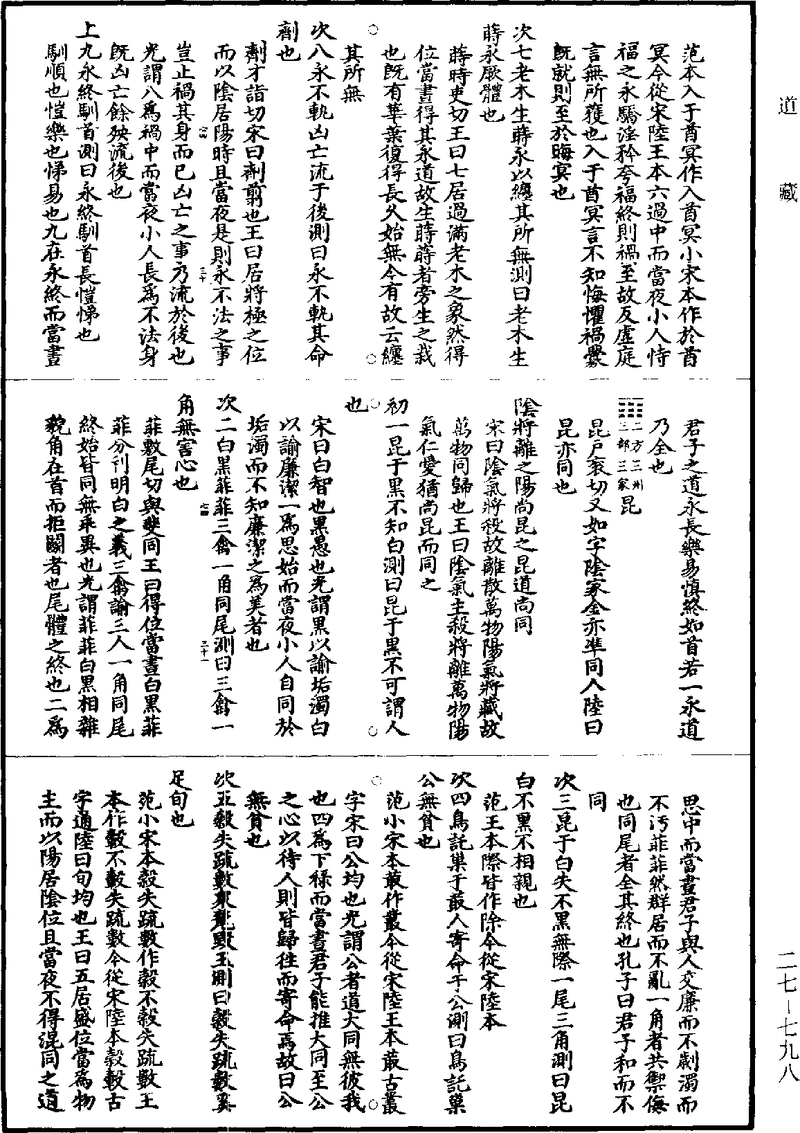 道藏
范本入于酋冥作入酋冥小宋本作於酋
冥今從宋陸王本六過中而當夜小人恃
福之永驕淫矜夸福終則禍至故反虛庭
言無所獲也入于酋冥言不知悔懼禍釁
旣就則至於晦冥也
次七老木生蒔永以纏其所無測曰老木生
蒔永厥體也
蒔時吏切王曰七居過滿老木之象然得
位當晝得其永道故生蒔蒔者旁生之栽
也旣有華葉復得長久始無今有故云纏
其所無
次八永不軌凶亡流于後測曰永不軌其命
劑也
劑才詣切宋曰劑翦也王曰居將極之位
而以陰居陽時且當夜是則永不法之事
豈止禍其身而已凶亡之事乃流於後也
光謂八爲禍中而當夜小人長爲不法身
旣凶亡餘殃流後也
上九永終馴首測曰永終馴首長愷悌也
馴順也愷樂也悌易也九在永終而當晝
君子之道永長樂易慎終如首若一永道
乃全也
二方三州
三部三家
昆
昆戶袞切又如字陰家金亦準同人陸曰
昆亦同也
陰將離之陽尚昆之昆道尚同
宋曰陰氣將殺故離散萬物陽氣將藏故
萬物同歸也王曰陰氣主殺將離萬物陽
氣仁愛猶尚昆而同之
初一昆于黑不知白測曰昆于黑不可謂人
也
宋曰白智也黑愚也光謂黑以諭垢濁白
以諭廉潔一爲思始而當夜小人自同於
垢濁而不知廉潔之爲美者也
次二白黑菲菲三禽一角同尾測曰三禽一
角無害心也
菲敷尾切與斐同王曰得位當晝白黑菲
菲分刊明白之義三禽諭三人一角同尾
終始皆同無乖異也光謂菲菲白黑相雜
貌角在首而拒鬭者也尾體之終也二爲
思中而當晝君子與人交廉而不劌濁而
不汚菲菲然群居而不亂一角者共禦侮
也同尾者全其終也孔子曰君子和而不
同
次三昆于白失不黑無際一尾三角測曰昆
白不黑不相親也
范王本際皆作除今從宋陸本
次四鳥託巢于菆人寄命于公測曰鳥託巢
公無貧也
范小宋本菆作叢今從宋陸王本菆古叢
字宋曰公均也光謂公者道大同無彼我
也四爲下祿而當晝君子能推大同至公
之心以待人則皆歸往而寄命焉故曰公
無貧也
次五縠失疏數衆氂毀玉測曰縠失疏數奚
足旬也
范小宋本縠失疏數作穀不穀失疏數王
本作轂不轂失疏數今從宋陸本縠轂古
字通陸曰旬均也王曰五居盛位當爲物
主而以陽居陰位且當夜不得混同之道
二七—七九八